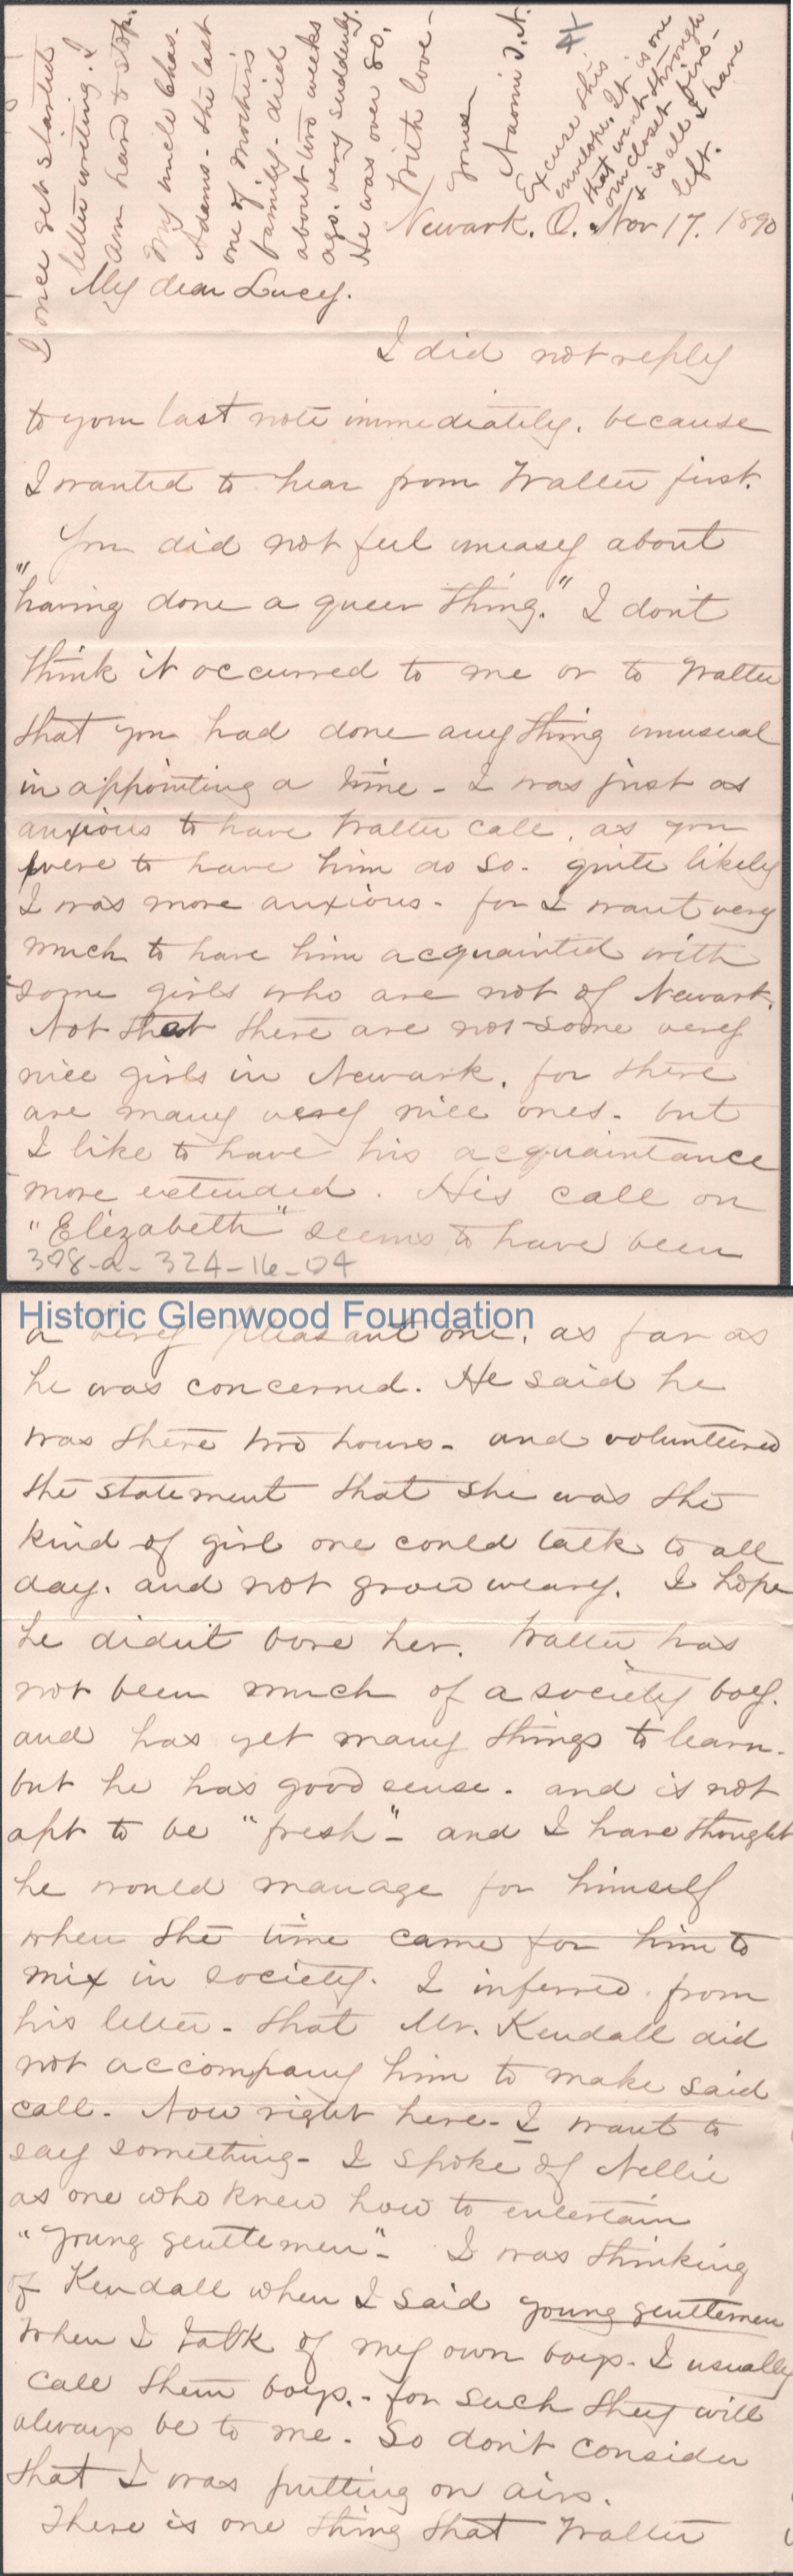 I once get started
letter writing. I
am hard to stop.
My uncle Chas.
Adams - the last
one of mother's
family - died
about two weeks
ago. very suddenly.
He was over 80.
With love -
Yours -
Naomi J. A.
Excuse this
envelope. It is one
that went through
our closet fire -
& is all I have
left.
Newark. O. Nov 17. 1890
My dear Lucy.
I did not reply
to your last note immediately. because
I wanted to hear from Walter first.
You did not feel uneasy about
"having done a queer thing." I don't
think it occurred to me or to Walter
that you had done any thing unusual
in appointing a time - I was just as
anxious to have Walter call, as you
were to have him do so - quite likely
I was more anxious - for I want very
much to have him acquainted with
some girls who are not of Newark.
Not that there are not some very
nice girls in Newark, for there
are many very nice ones - but
I like to have his acquaintance
more extended. His call on
"Elizabeth" seems to have been
398-a-324-16-04
Historic Glenwood Foundation
a very pleasant one, as far as
he was concerned. He said he
was there two hours - and volunteered
the statement that she was the
kind of girl one could talk to all
day, and not grow weary. I hope
he didn't bore her. Walter has
not been much of a society boy.
and has yet many things to learn -
but he has good sense - and is not
apt to be "fresh" - and I have thought
he would manage for himself
when the time came for him to
mix in society. I inferred from
his letter - that Mr. Kendall did
not accompany him to make said
call - Now right here - I want to
say something - I spoke of Nellie
as one who knew how to entertain
"young gentlemen" - I was thinking
of Kendall when I said young gentlemen
When I talk of my own boys - I usually
call them boys. - for such they will
always be to me - So don't consider
that I was putting on airs.
There is one thing that Walter